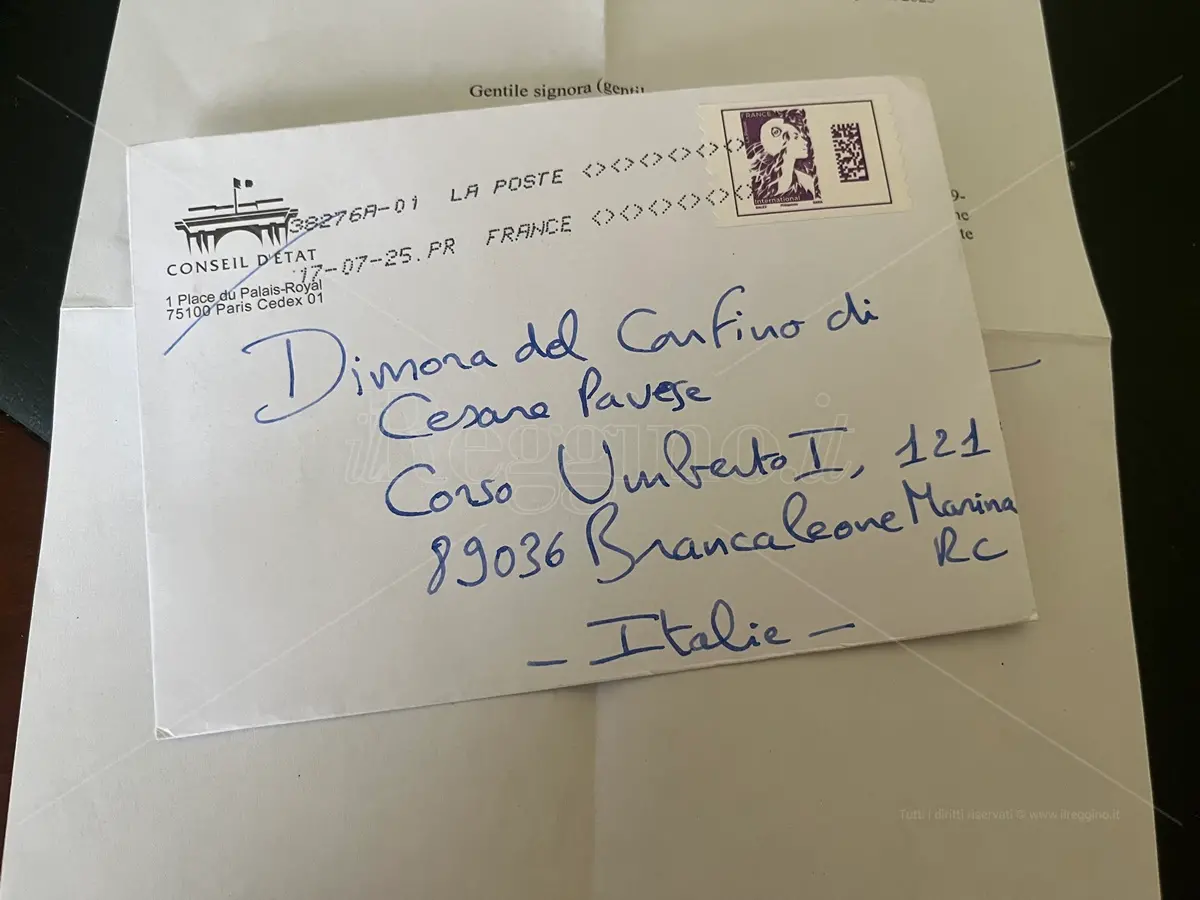 Gentile signora
CONSEIL D'ÉTAT
1 Place du Palais-Royal
75100 Paris Cedex 01
38276A-01 LA POSTE <><><><><><>
17-07-25.PR FRANCE <><><><><><>
FRANCE
International
Dimora del Confino di
Cesare Pavese
Corso Umberto I, 121
89036 Brancaleone Marina
RC
- Italie -
ilreggino.i
Tutti i diritti riservati © www.ilreggino.it